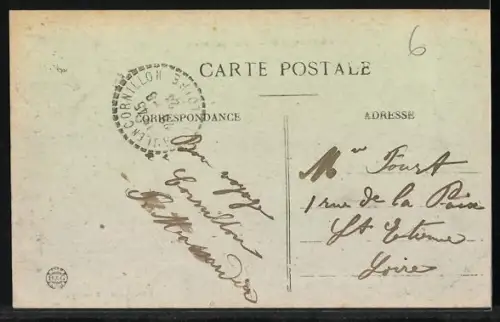 6
CARTE POSTALE
CORRESPONDANCE
ADRESSE
Bon voyage
Cornillon
Mme Fourt
1 rue de la Paix
St Etienne
Loire